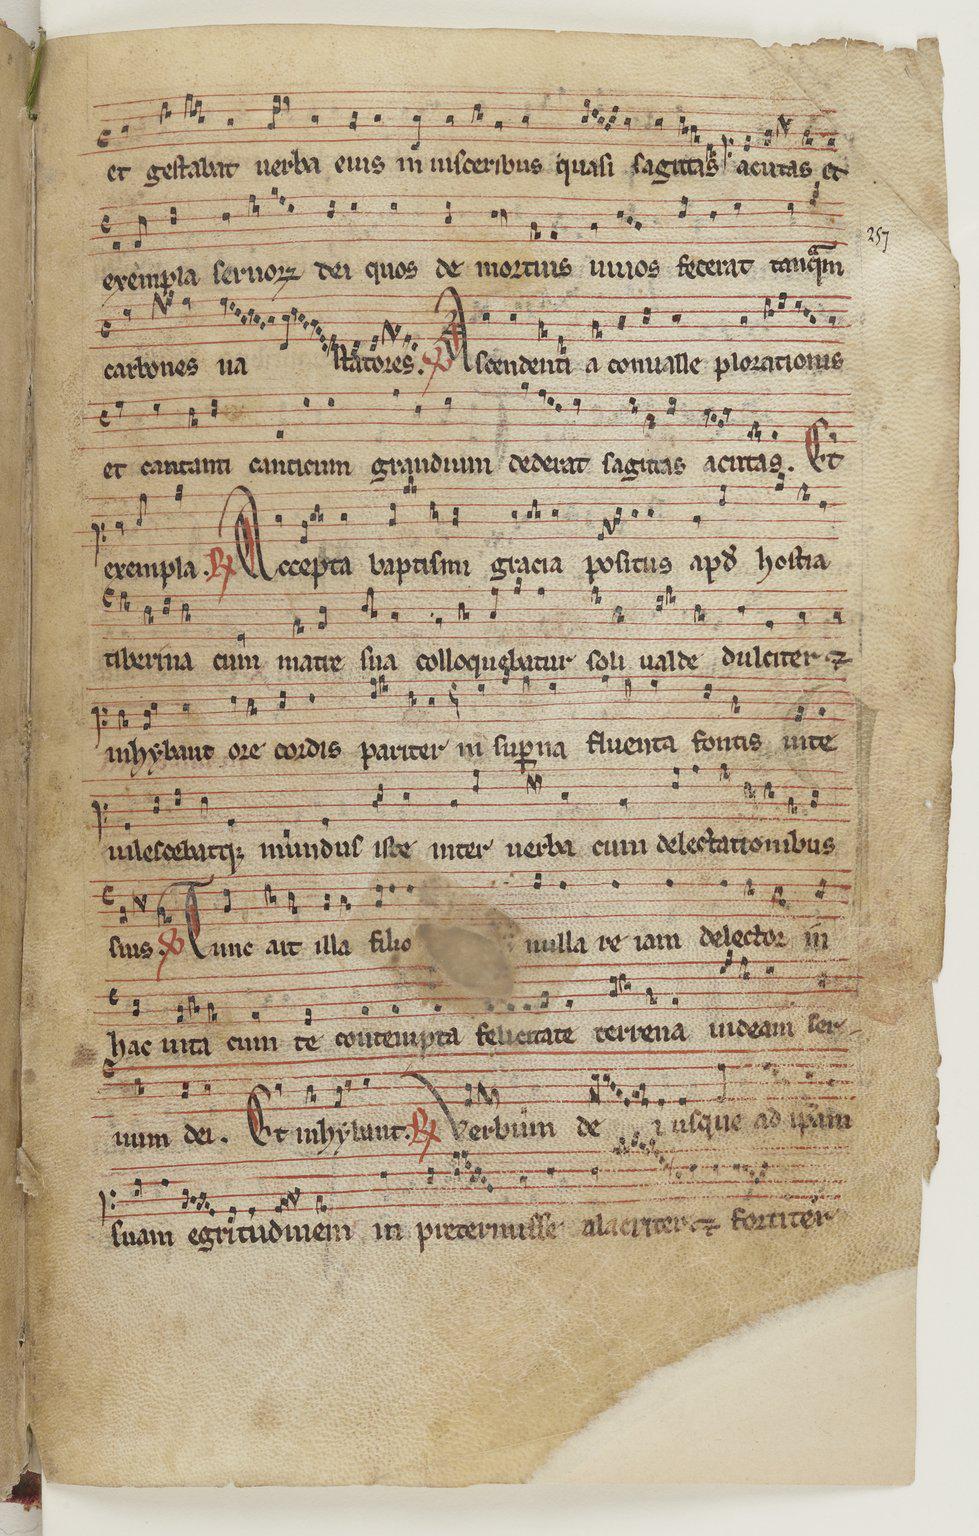 et gestabat uerba eius in uisceribus quasi sagittas acutas et
257
exempla seruorꝝ dei quos de mortuis uiuos fecerat tanq̃m
carbones ua statores. ℣ Ascendenti a conualle plorationis
et cantanti canticum graduum dederat sagittas acutas. Et
exempla. ℟ Accepta baptismi gracia positus apđ hostia
tiberina cum matre sua colloquebatur soli ualde dulciter ⁊
inhybant ore cordis pariter in suꝑna fluenta fontis uite
uilescebatqꝫ mundus iste inter uerba cum delectationibus
suis. ℣ Tunc ait illa filio nulla re iam delector in
hac uita cum te contempta felicitate terrena uideam ser-
uum dei. Et inhybant. ℟ Verbum de usque ad ip̃am
suam egritudinem in pretermisse alacriter ⁊ fortiter